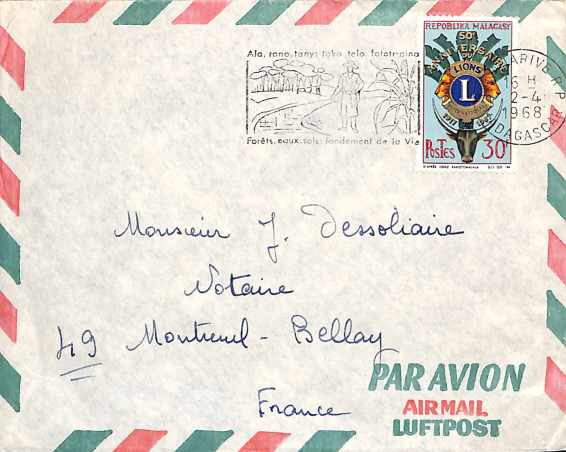 Ala, rano, tany: toko telo fototr'aina
Forêts, eaux, sols: fondement de la Vie
REPOBLIKA MALAGASY
50e
ANNIVERSAIRE
DU
LIONS
L
INTERNATIONAL
1917 1967
POSTES 30F
ARIVE R.P
16 H
2-4
1968
MADAGASCAR
Monsieur J. Dessoliaire
Notaire
49 Montreuil-Bellay
France
PAR AVION
AIR MAIL
LUFTPOST